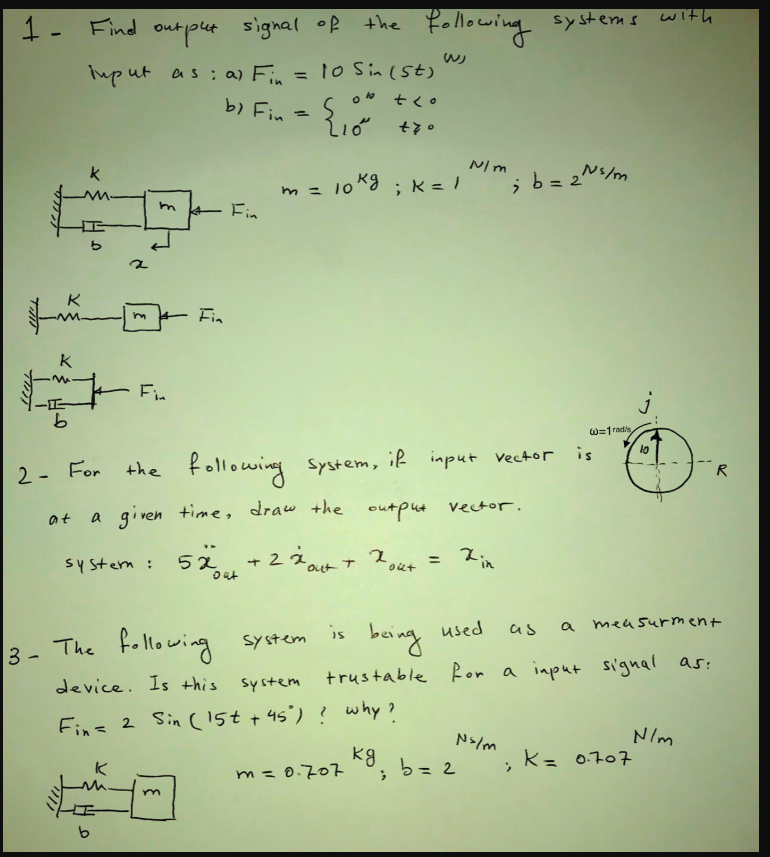 1 - Find output signal of the following systems with
input as : a) Fin = 10 Sin (5t) (N)
b) Fin = { 0 N t < 0
10 N t ≥ 0
K
m
b
Fin
x
m = 10 Kg ; K = 1 N/m ; b = 2 Ns/m
K
m
Fin
K
b
Fin
j
ω=1 rad/s
10
R
2 - For the following system, if input vector is
at a given time, draw the output vector.
system : 5ẍout + 2ẋout + xout = xin
3 - The following system is being used as a measurment
device. Is this system trustable for a input signal as:
Fin = 2 Sin (15t + 45°) ? why?
K
m
b
m = 0.707 Kg ; b = 2 Ns/m ; K = 0.707 N/m